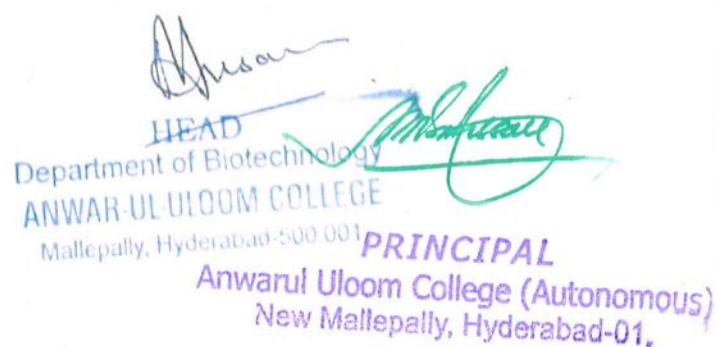 HEAD
Department of Biotechnology
ANWAR-UL-ULOOM COLLEGE
Mallepally, Hyderabad-500 001
PRINCIPAL
Anwarul Uloom College (Autonomous)
New Mallepally, Hyderabad-01.